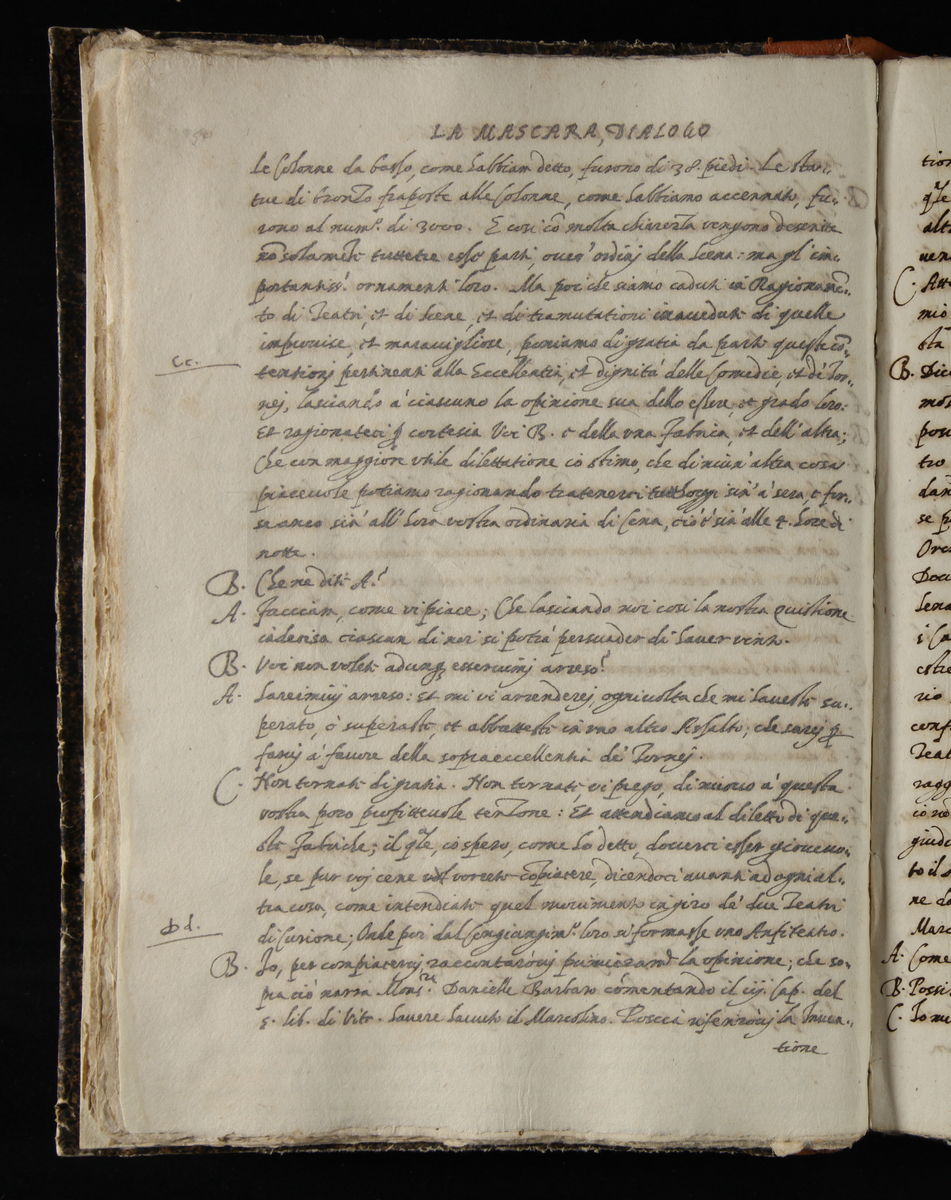 LA MASCARA, DIALOGO
le Colonne da basso, come habbiam detto, furono di 38. piedi. Le sta-
tue di bronzo fraposte alle Colonne, come habbiamo accennato, fu-
rono al num.º di 3000. E così cõ molta chiarezza vengono descritte
nõ solamẽte tutte tre esse parti, over' ordinj della Scena: ma gl' im-
portantiss.i ornamenti loro. Ma poi che siamo caduti in Ragionamẽ-
to di Teatri, et di Scene, et di tramutationi inavedute di quelle
improvise, et maravigliose, poniamo di gratia da parte queste cõ-
cc.
tentionj pertinenti alla Eccellentia, et dignità delle Comedie, et de' Tor-
nej, lasciando à ciascuno la opinione sua dello essere, et grado loro:
Et ragionateci ꝑ cortesia Voi B. e della una fabrica, et dell' altra;
Che con maggiore utile dilettatione io stimo, che di niun' altra cosa
piacevole potiamo ragionando tratenerci tutt'hoggi sin' à sera, e for-
s' anco sin' all' hora vostra ordinaria di Cena, ciò è sin' alle 4. hore di
notte.
B. Che ne dite A.?
A. Facciam, come vi piace; Che lasciando noi così la nostra Quistione
indecisa ciascun di noi si potrà persuader di haver vinto.
B. Voi non volete adunq; esservimj arreso?
A. Sareimivj arreso: et mi vi arrenderej, ogni volta che mi haveste su-
perato, ò superaste, et abbatteste in uno altro Assalto, che sarej ꝑ
farvj à favore della sopraeccellentia de' Tornej.
C. Non tornate di gratia. Non tornate, vi prego, di nuovo à questa
vostra poco profittevole tenzone: Et attendiamo al diletto di que-
ste Fabriche; il q̃le, io spero, come hò detto, doverci esser giovevo-
le, se pur voj ce ne vorrete compiacere, dicendoci avanti ad ogni al-
tra cosa, come intendiate quel movimento in giro de' due Teatri
Dd.
di Curione; Onde poi dal Congiungim.to loro si formasse uno Anfiteatro.
B. Io, per compiacervj raccontarovj primieram.te la opinione; che so-
pra ciò narra Mons.re Danielle Barbaro comentando il iij. Cap. del
5. lib. di Vitr. havere havuto il Marcolino. Poscia riferirovj la Inven-
tione